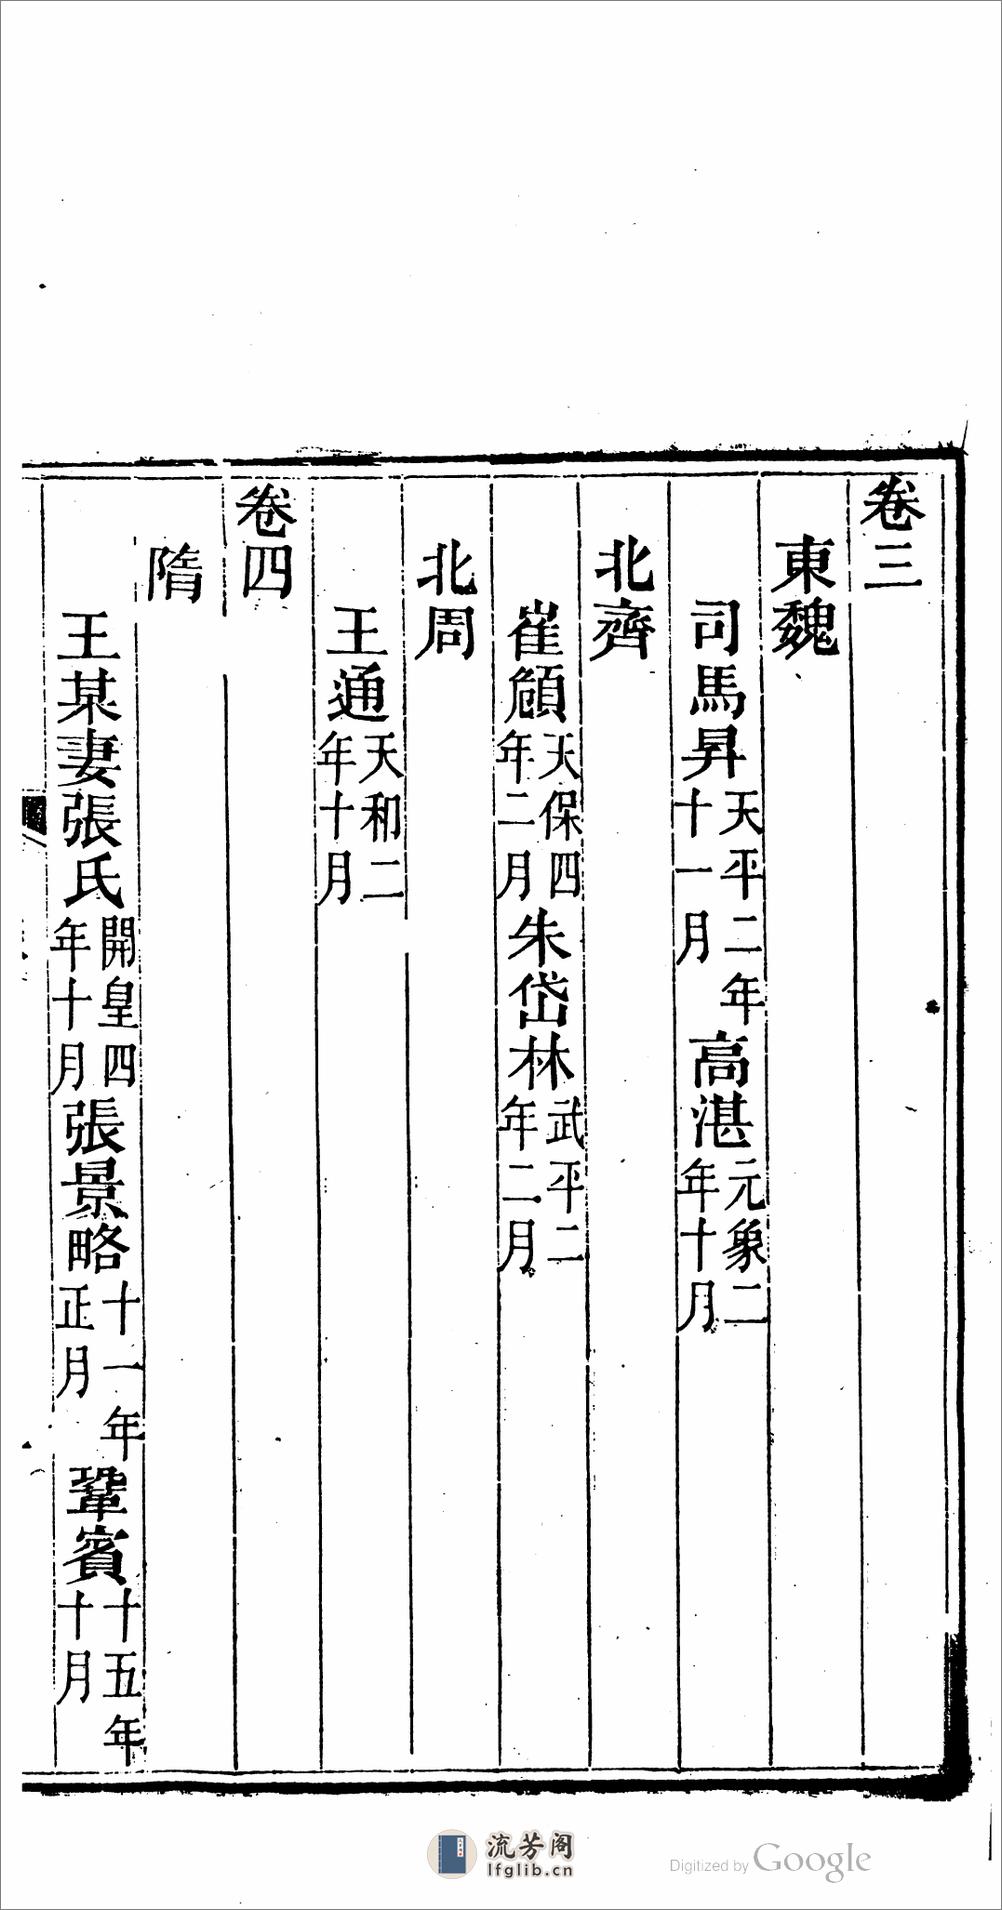 卷三
東魏
司馬昇天平二年十一月高湛元象二年十月
北齊
崔頠天保四年二月朱岱林武平二年二月
北周
王通天和二年十月
卷四
隋
王某妻張氏開皇四年十月張景略十一年正月鞏賓十五年十月
流芳阁
lfglib.cn
Digitized by Google